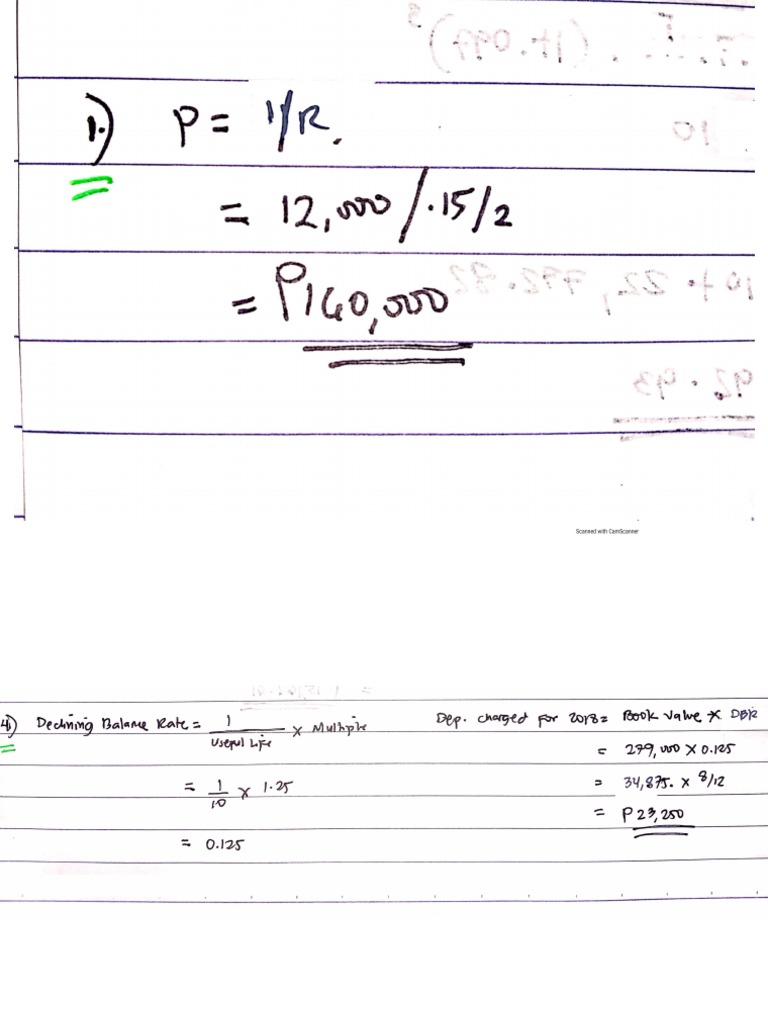 1.) P = 1/R.
= 12,000/.15/2
= P160,000
Scanned with CamScanner
4) Declining Balance Rate = 1 / Useful Life x Multiple
= 1/10 x 1.25
= 0.125
Dep. charged for 2018 = Book Value x DBR
= 279,000 x 0.125
= 34,875. x 8/12
= P23,250